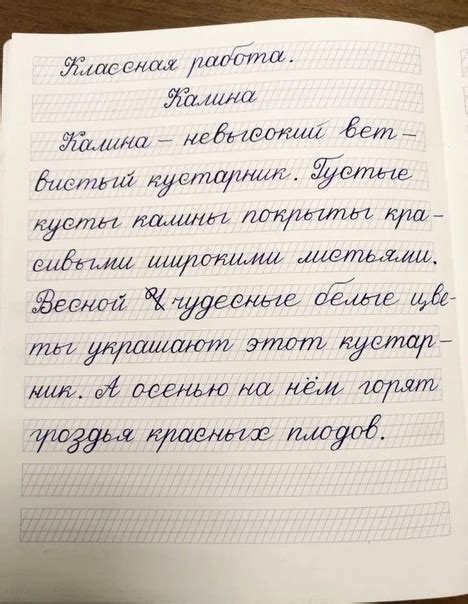 Классная работа.
Калина
Калина – невысокий вет-
вистый кустарник. Густые
кусты калины покрыты кра-
сивыми широкими листьями.
Весной чудесные белые цве-
ты украшают этот кустар-
ник. А осенью на нём горят
гроздья красных плодов.